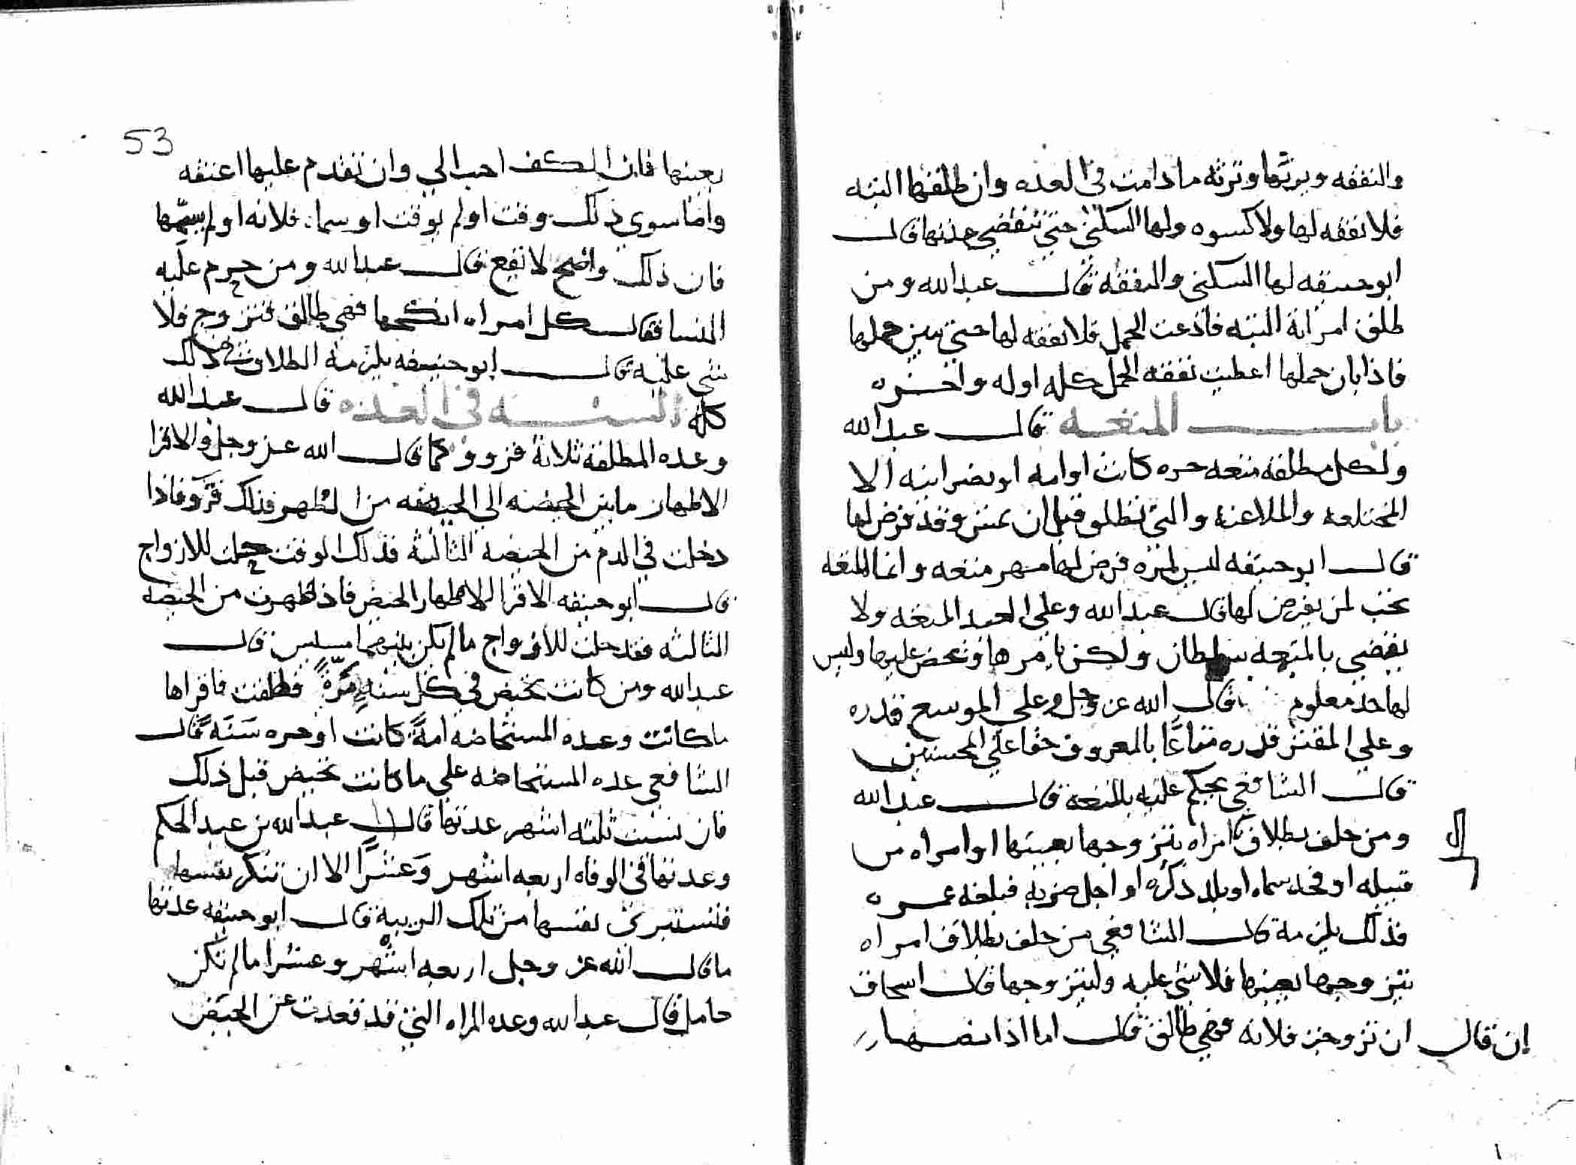 والنفقه ويرثها وترثه ما دامت في العده وان طلقها البته
فلا نفقه لها ولا كسوه ولها السكنى حتى تنقضي عدتها قال
ابو حنيفه لها السكنى والنفقه قال عبد الله ومن
طلق امراته البته فادعت الحمل فلا نفقه لها حتى يتبين حملها
فاذا بان حملها اعطيت نفقه الحمل كله اوله واخره
باب المتعه قال عبد الله
ولكل مطلقه متعه حره كانت او امه او نصرانيه الا
المختلعه والملاعنه والتي تطلق قبل ان تمس وقد فرض لها
قال ابو حنيفه ليس لمن فرض لها مهر متعه وانما المتعه
تجب لمن لم يفرض لها قال عبد الله وعلى العبد المتعه ولا
يقضي بالمتعه سلطان ولكن يامرها ويحض عليها وليس
لها حد معلوم قال الله عز وجل وعلى الموسع قدره
وعلى المقتر قدره متاعا بالمعروف حقا على المحسنين
قال الشافعي يحكم عليه بالمتعه قال عبد الله
ومن حلف بطلاق امراه يتزوجها بعينها او امراه من
قبيله او فخد سماه او بلد ذكره او اجل ضربه فبلغه عمره
فذلك يلزمه قال الشافعي من حلف بطلاق امراه
يتزوجها بعينها فلا شي عليه وليتزوجها قال اسحاق
إن قال ان تزوجت فلانه فهي طالق قال اما اذا نصها
53
بعينها فان الكف احب الي وان تقدم عليها اعنفه
واما سوى ذلك وقت او لم يوقت او سما فلانه او لم يسمها
فان ذلك واضح لا يقع قال عبد الله ومن حرم عليه
النسا فقال كل امراه انكحها فهي طالق فتزوج فلا
شي عليه قال ابو حنيفه يلزمه الطلاق في ذلك
كله السنه في العده قال عبد الله
وعده المطلقه ثلاثة قروو كما قال الله عز وجل والاقرا
الاطهار ما بين الحيضه الى الحيضه من الطهر فذلك قرو فاذا
دخلت في الدم من الحيضه الثالثه فذلك الوقت حلت للازواج
قال ابو حنيفه الاقرا للاطهار الحيض فاذا طهرت من الحيضه
الثالثه فقد حلت للازواج ما لم يكن بينهما مسيس قال
عبد الله ومن كانت تحيض في كل سنة مرة فطلقت فاقراها
ما كانت وعده المستحاضه امة كانت او حره سنة قال
الشافعي عده المستحاضه على ما كانت تحيض قبل ذلك
فان نسيت ثلثه اشهر عدتها قال عبد الله بن عبد الحكم
وعدتها في الوفاه اربعه اشهر وعشرا الا ان تنكر نفسها
فتستبرى نفسها من تلك الريبه قال ابو حنيفه عدتها
ما قال الله عز وجل اربعه اشهر وعشرا ما لم تكن
حامل قال عبد الله وعده المراه التي قد قعدت عن الحيض